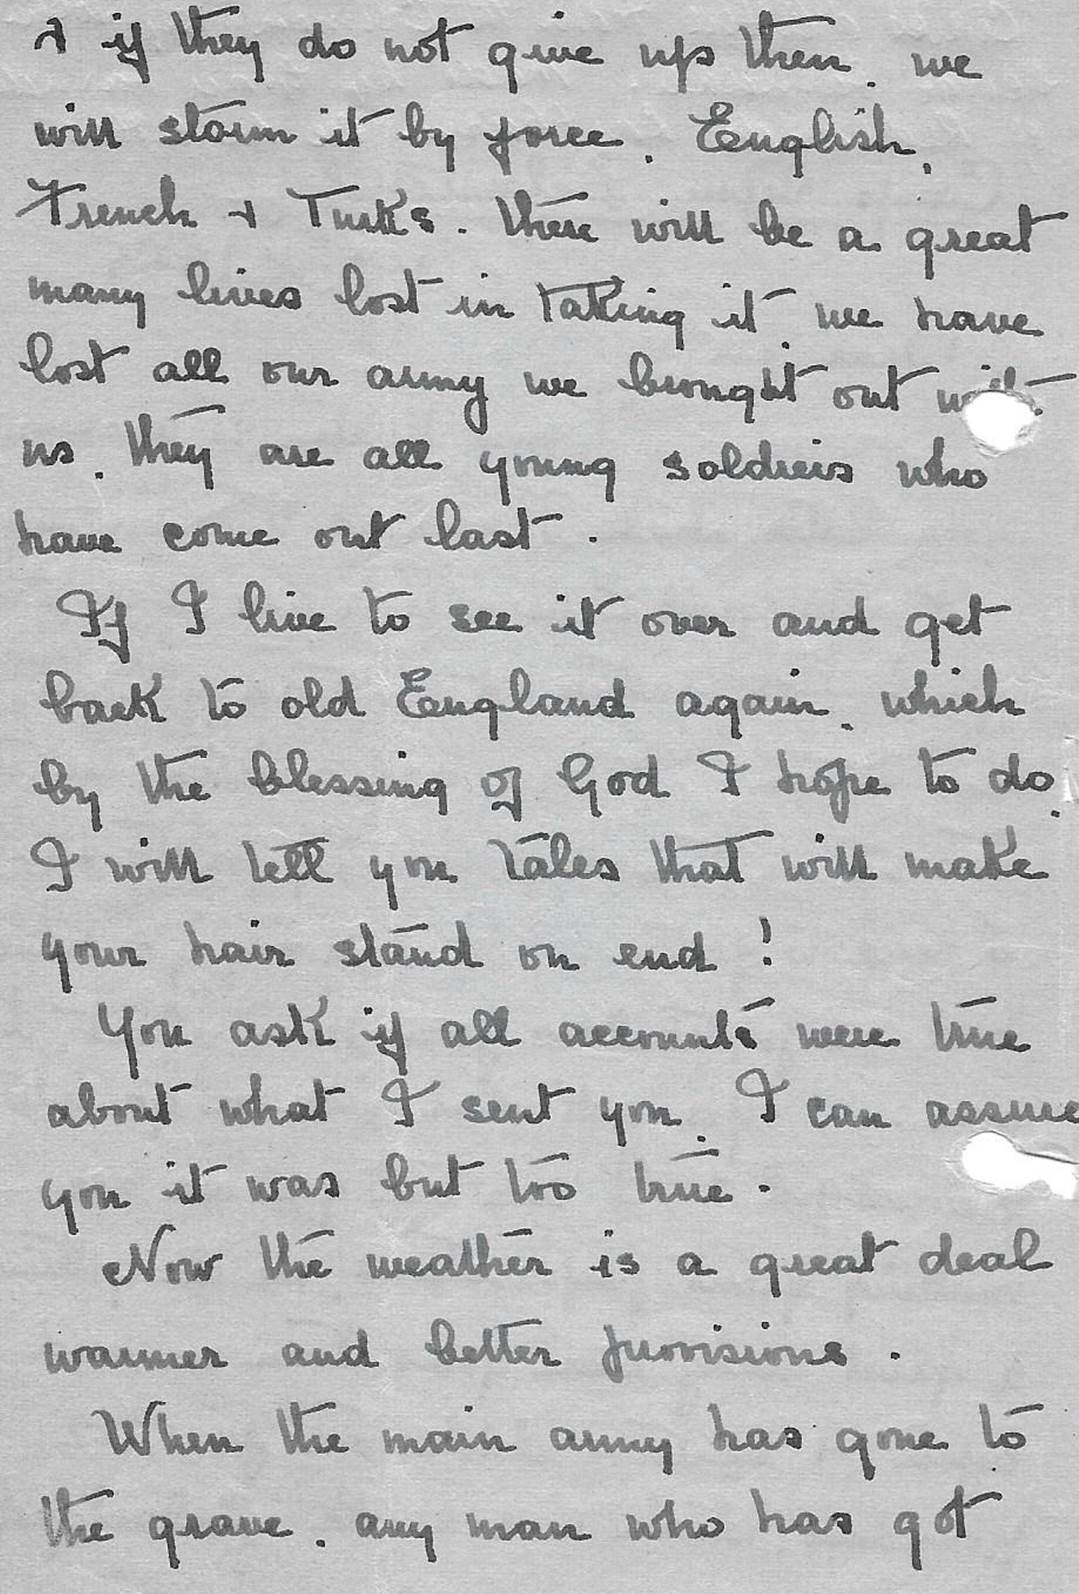 & if they do not give up then, we
will storm it by force. English,
French & Turks. there will be a great
many lives lost in taking it, we have
lost all our army we brought out with
us. they are all young soldiers who
have come out last.
If I live to see it over and get
back to old England again, which
by the blessing of God I hope to do,
I will tell you tales that will make
your hair stand on end!
You ask if all accounts were true
about what I sent you, I can assure
you it was but too true.
Now the weather is a great deal
warmer and better provisions.
When the main army has gone to
the grave, any man who has got